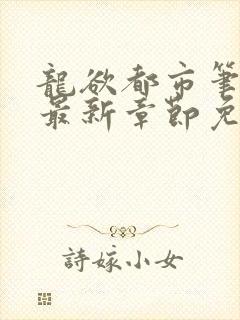 龍欲都市筆
最新章節免
詩嫁小女